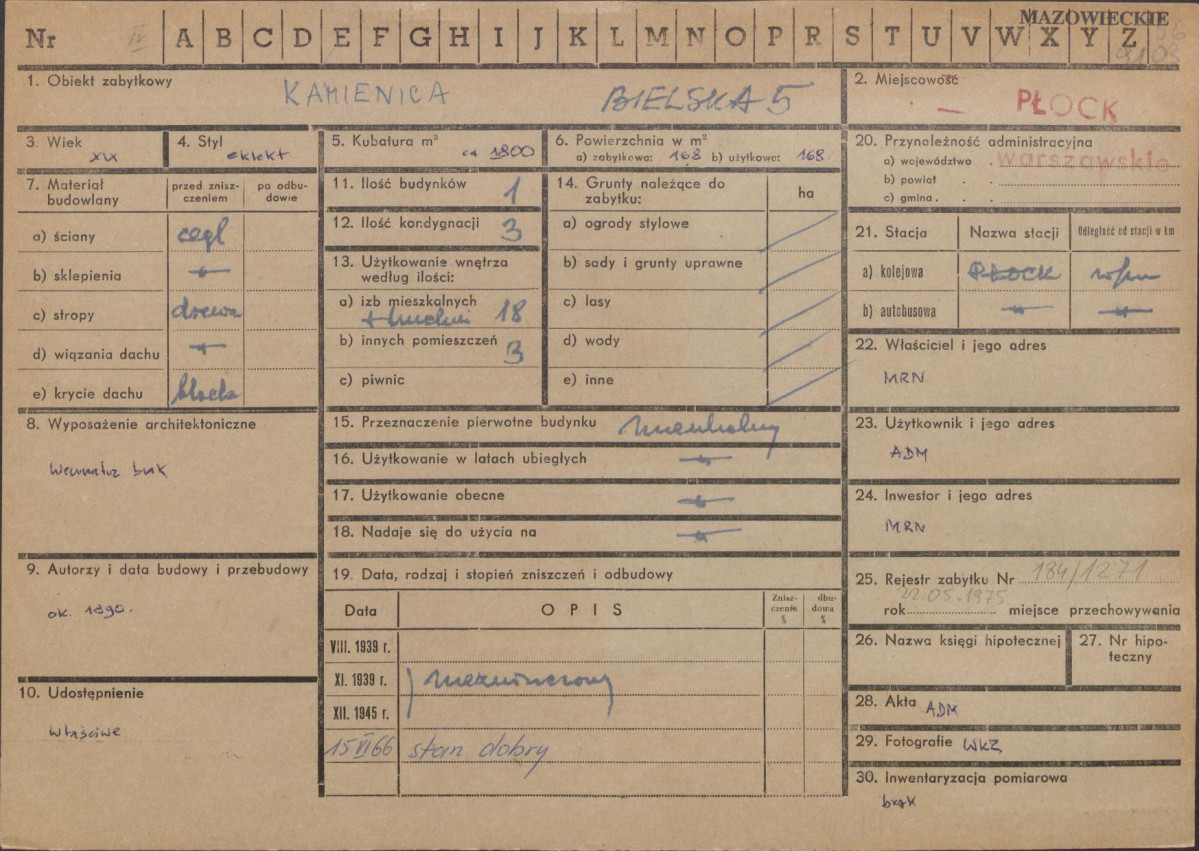 MAZOWIECKIE
Nr IV A B C D E F G H I J K L M N O P R S T U V W X Y Z
1. Obiekt zabytkowy KAMIENICA BIELSKA 5
2. Miejscowość
— PŁOCK
3. Wiek XIX
4. Styl eklekt
5. Kubatura m³ ca 1800
6. Powierzchnia w m²
a) zabytkowa: 168 b) użytkowa: 168
7. Materiał budowlany
przed zniszczeniem
po odbudowie
a) ściany cegl
b) sklepienia -"-
c) stropy drewn
d) wiązania dachu -"-
e) krycie dachu blacha
8. Wyposażenie architektoniczne
wewnątrz brak
9. Autorzy i data budowy i przebudowy
ok. 1890.
10. Udostępnienie
właściwe
11. Ilość budynków 1
12. Ilość kondygnacji 3
13. Użytkowanie wnętrza
według ilości:
a) izb mieszkalnych
+ kuchni 18
b) innych pomieszczeń 3
c) piwnic
14. Grunty należące do
zabytku:
ha
a) ogrody stylowe
b) sady i grunty uprawne
c) lasy
d) wody
e) inne
15. Przeznaczenie pierwotne budynku mieszkalny
16. Użytkowanie w latach ubiegłych -"-
17. Użytkowanie obecne -"-
18. Nadaje się do użycia na -"-
19. Data, rodzaj i stopień zniszczeń i odbudowy
Data OPIS Zniszczenie % dbudowa %
VIII. 1939 r.
XI. 1939 r. niezniszczony
XII. 1945 r.
15 VI 66 stan dobry
20. Przynależność administracyjna
a) województwo . warszawskie
b) powiat . .
c) gmina . .
21. Stacja Nazwa stacji Odległość od stacji w km
a) kolejowa PŁOCK
b) autobusowa -"- -"-
22. Właściciel i jego adres
MRN
23. Użytkownik i jego adres
ADM
24. Inwestor i jego adres
MRN
25. Rejestr zabytku Nr 184/1271
22.05.1975
rok miejsce przechowywania
26. Nazwa księgi hipotecznej
27. Nr hipoteczny
28. Akta ADM
29. Fotografie WKZ
30. Inwentaryzacja pomiarowa
brak